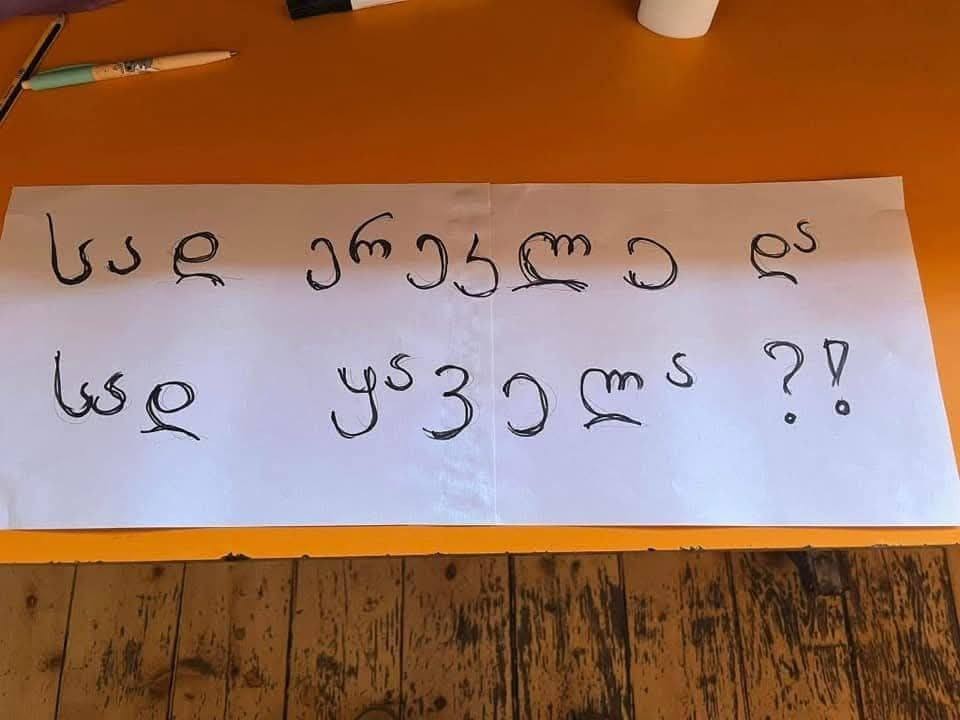 სად ერეკლე და
სად ყაველა ?!